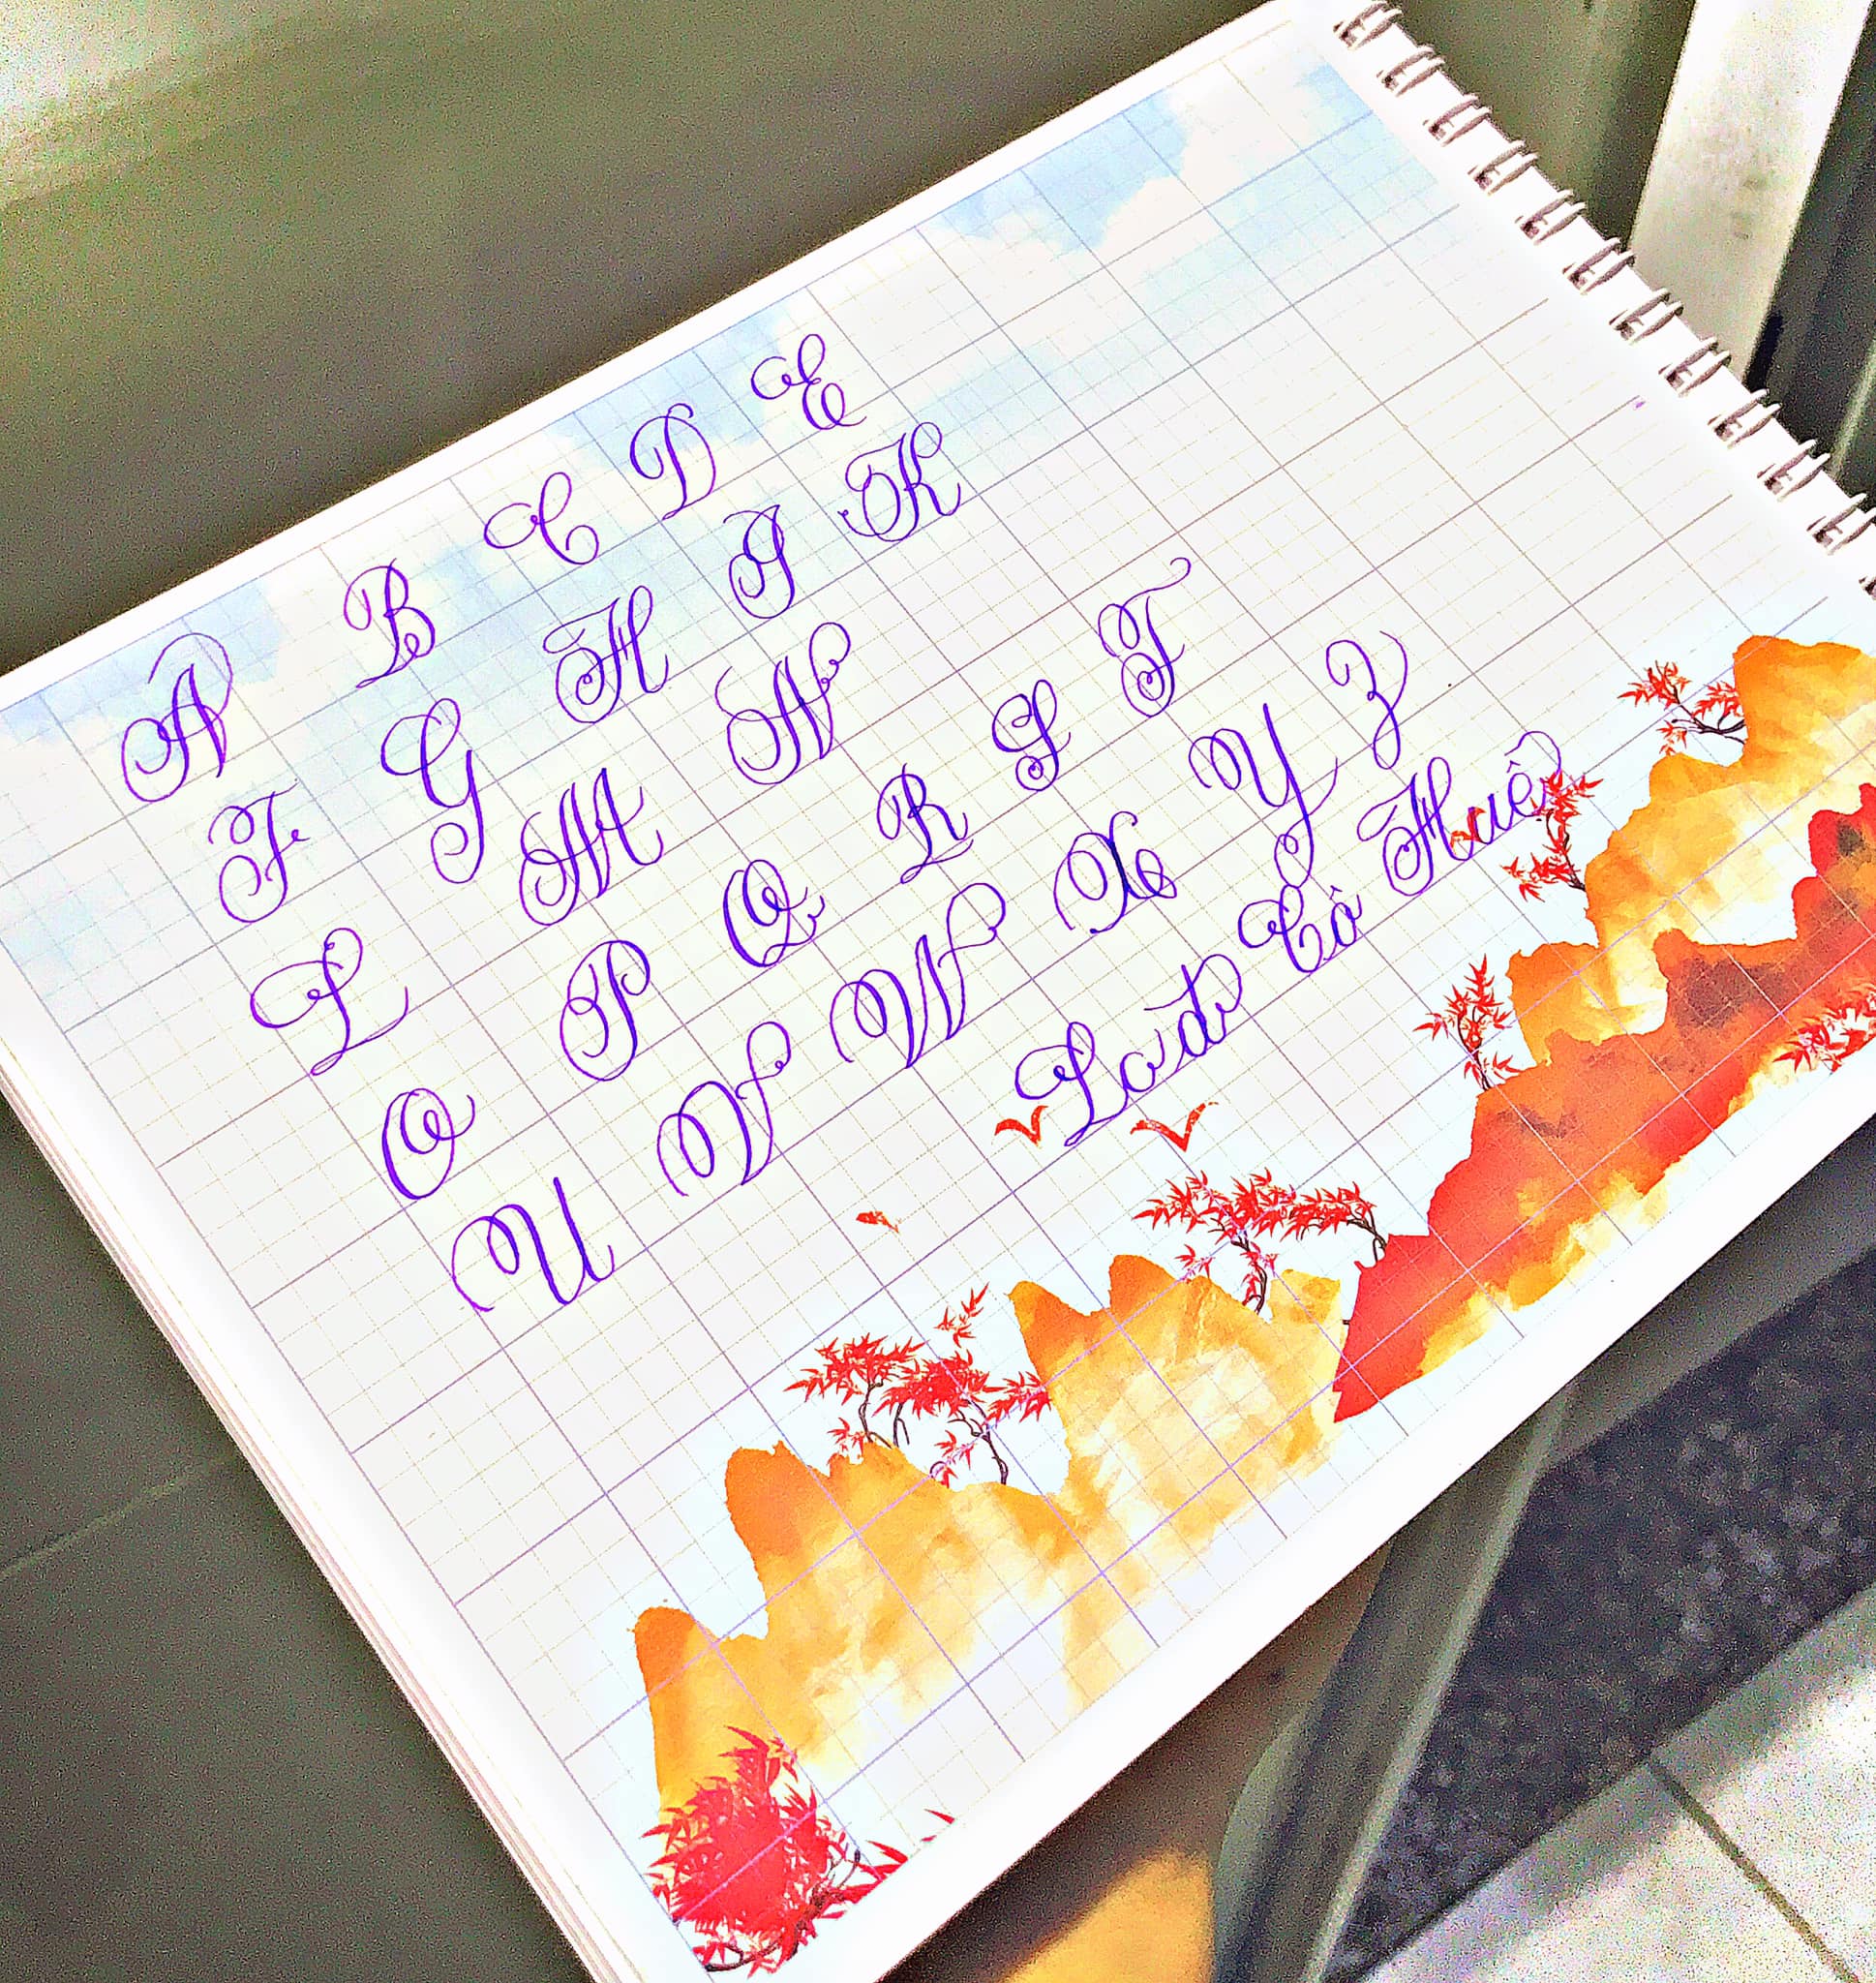 A B C D E
F G H I K
L M N
O P Q R S T
U V W X Y Z
Cô Huê